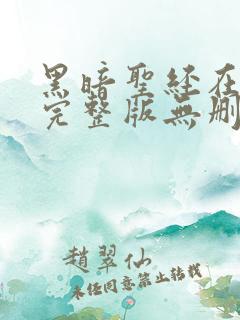 黑暗聖経在
完整版無刪
趙翠仙
未经同意禁止转载